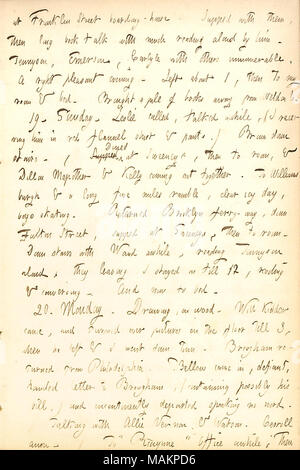 at Franklin Street boarding-house. Supped with them,
then long book & talk with much reading aloud by him.
Tennyson, Emerson, Carlyle with others innumerable.
A right pleasant evening. Left about 1, then to my
room & bed. Brought a pile of books away from Welden's.
19. Sunday. Leslie called, talked awhile, (I receiv-
ing him in red flannel shirt & pants.) Down
stairs. ( Dined at Sweeny's, then to room, &
Dillon Mapother & Kelly coming out together. To Williams
burgh & a long five miles ramble, clear icy day,
boys skating. Returned Brooklyn ferry-way, down
Fulton Street, supped at Sweeny's, then to room.
Down stairs with Ward awhile, reading Tennyson
aloud, they leaving I stayed in till 12, reading
& conversing. And now to bed.
20. Monday. Drawing, on wood. Will Kidder
came, and turned over pictures on the floor till I,
when he left & I went down town. Brougham re-
turned from Philadelphia. Bellew came in, defiant,
handed letter to Brougham, (containing possibly his
bill,) and incontinently departed speaking no word.
Talking with Allie Vernon & Watson. Carroll
anon. To "Picayune" Office awhile; Then
alamy
Image ID: MAKPD6
www.alamy.com